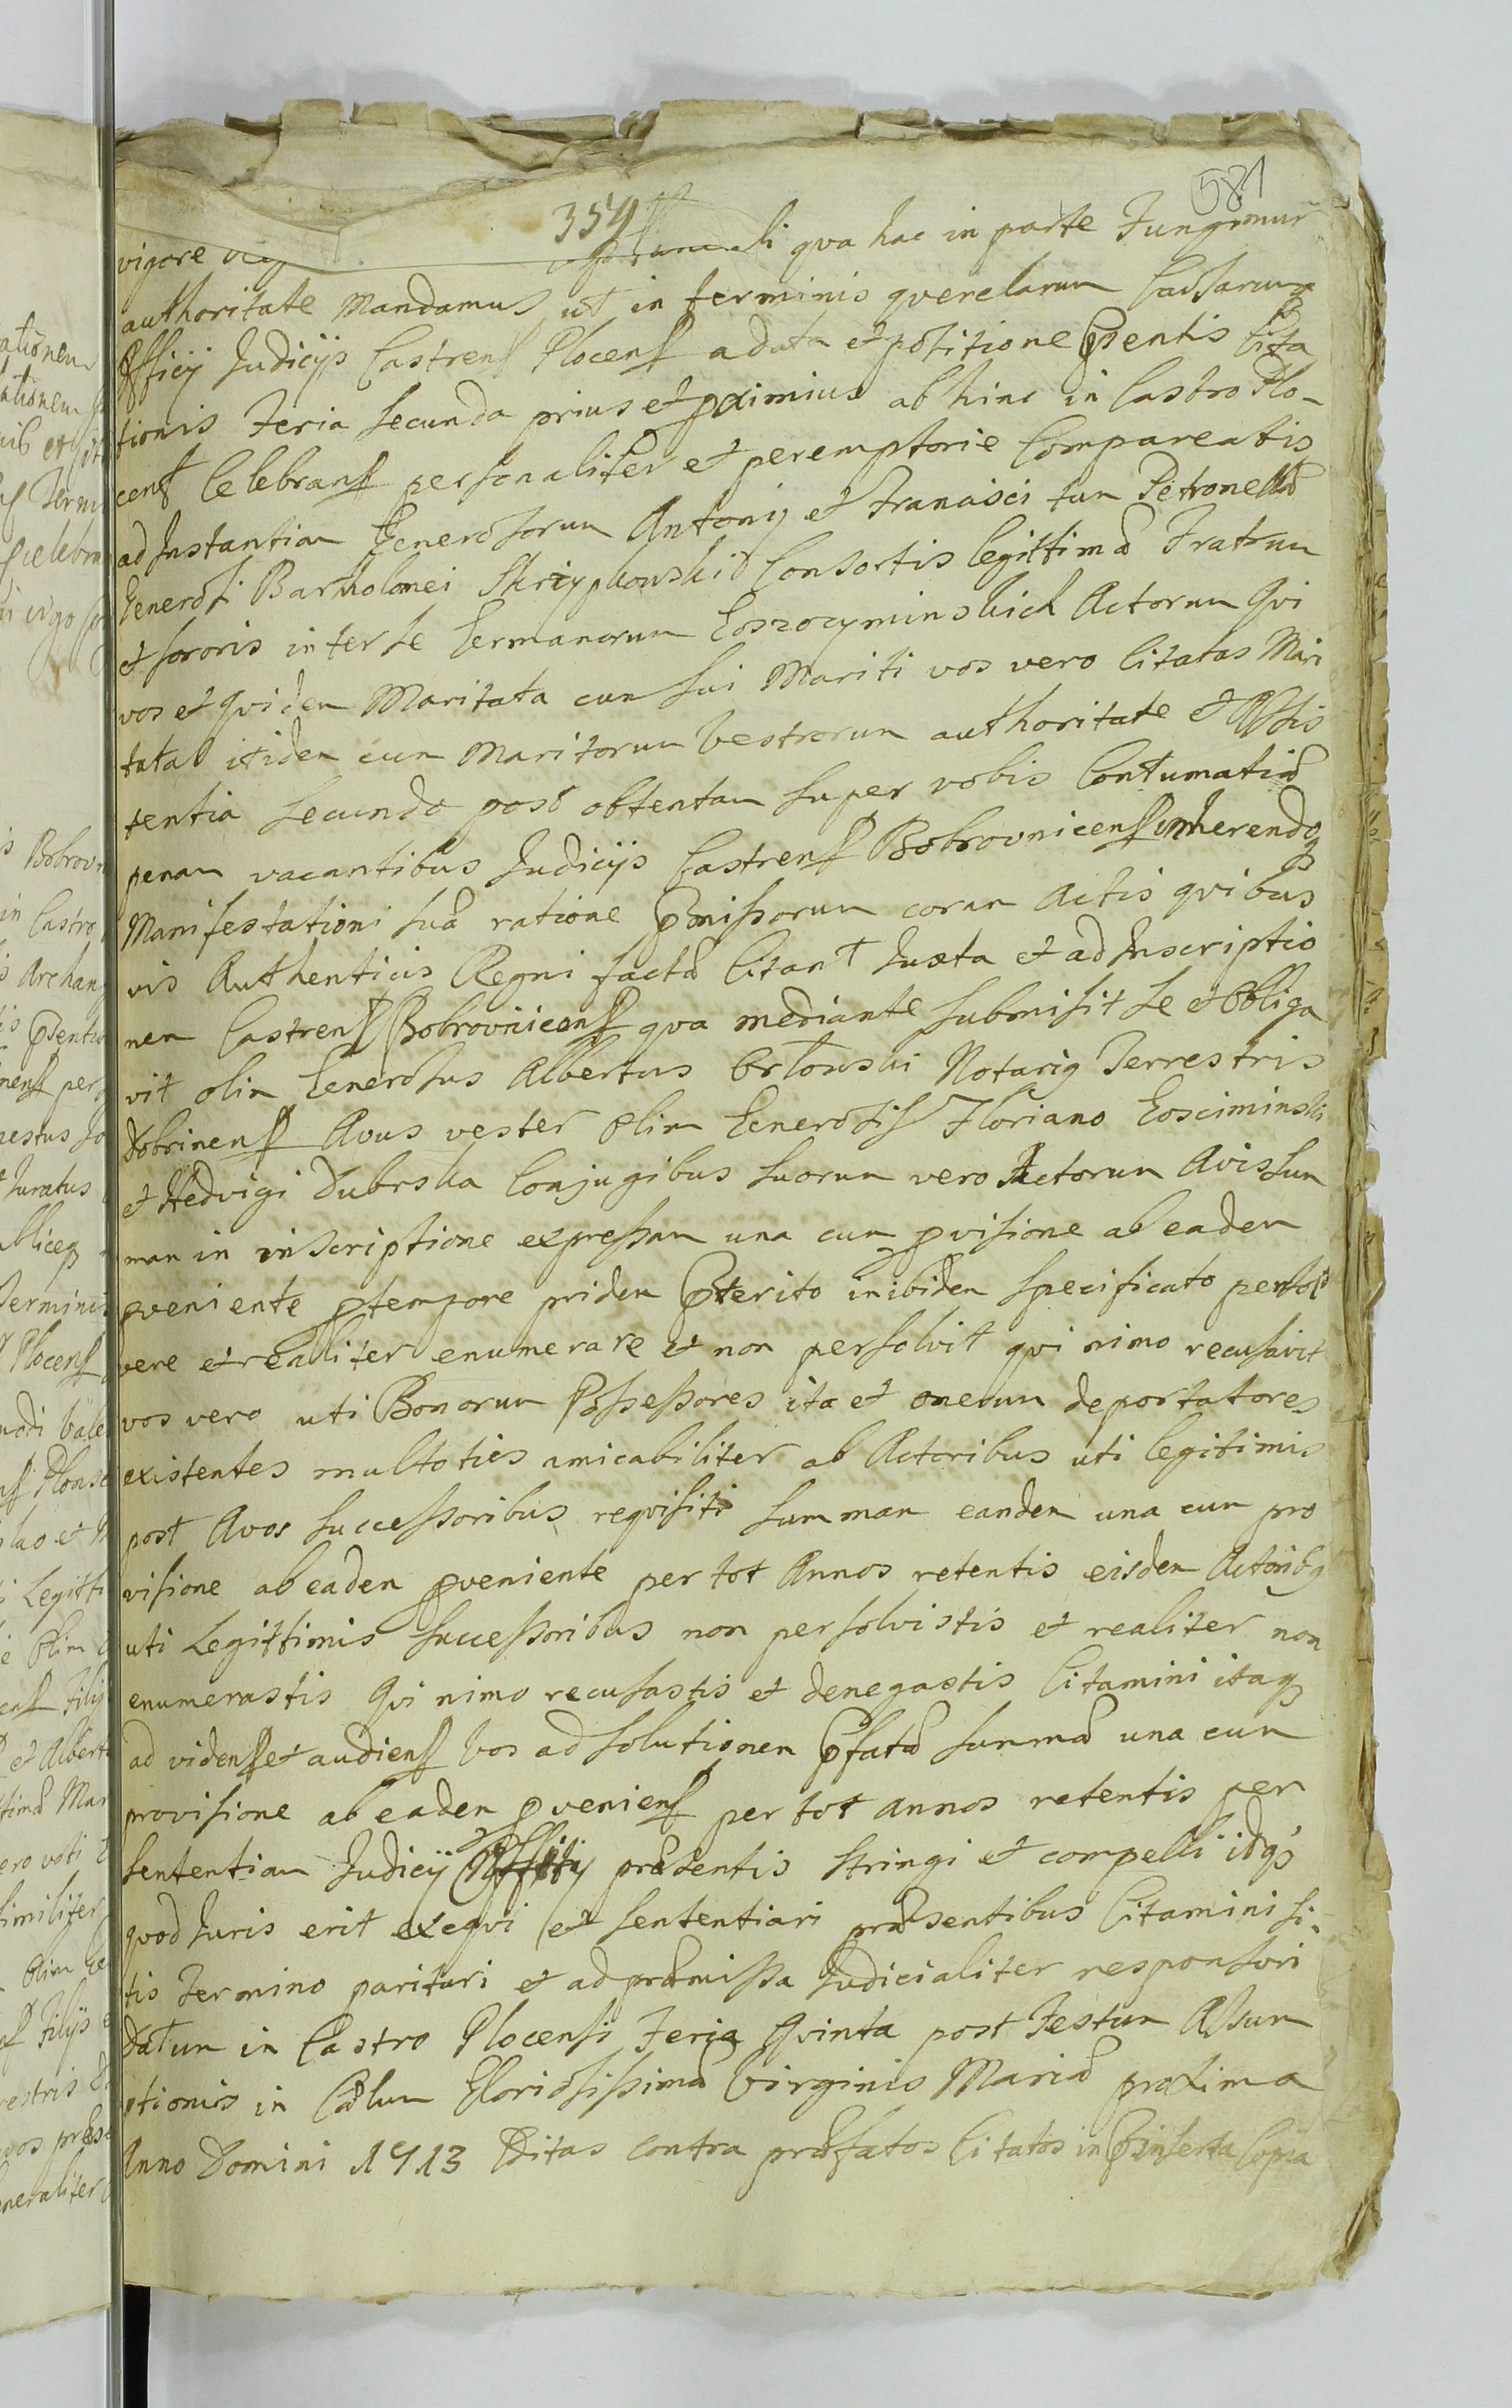 581
354
vigore qua hac in parte Fungimur
authoritate Mandamus ut in terminis querelarum Causarum
Officij Judicijs Castrens Plocens a data et positione Pntis Cita
tionis Feria secunda prius et proximius ab hinc in Castro Plo-
cens Celebrans personaliter et peremptorie Compareatis
ad Instantiam Generosorum Antonij et Francisci tum Petronellæ
Generosi Bartholomei Skrzypkowski Consortis legittimæ Fratrum
et sororis inter se Germanorum Goszczyminskich Actorum Qui
vos et quidem Maritata cum sui Mariti vos vero Citatas Mari
tatas itidem cum Maritorum Vestrorum authoritate et Assis
tentia secundo post obtentam super vobis Contumatiæ
penam vacantibus Judicijs Castrens Bobrovnicens inherendoq
Manifestationi suæ ratione Pmissorum coram Actis quibus
vis Authenticis Regni factæ Citant Juxta et ad Inscriptio
nem Castrens Bobrovnicens qva mediante submisit se et Obliga
vit olim Generosus Albertus Orłowski Notarig Terrestris
Dobrinens Avus vester Olim Generosis Floriano Gosciminski
et Hedvigi Dubrska Conjugibus suorum vero Actorum Avis sum
mam in inscriptione expressam una cum pvisione ab eadem
pveniente p tempore pridem Pterito inibidem specificato persol
vere et realiter enumerare et non persolvit qvi nimo recusavit
vos vero uti Bonorum Possessores ita et onerum deportatores
existentes multoties amicabiliter ab Actoribus uti legitimis
post Avos successoribus reqvisiti summam eandem una cum pro
visione ab eadem pveniente per tot Annos retentis eisdem Actoribg
uti Legittimis successoribus non persolvistis et realiter non
enumerastis Qvi nimo recusastis et denegastis Citamini itaq
ad videns et audiens vos ad solutionem Pfatæ summæ una cum
provisione ab eadem pveniens per tot annos retentis per
sententiam Judicij Officij præsentis stringi et compelli idq
qvod Juris erit exeqvi et sententiari præsentibus Citamini si-
tis Termino parituri et ad præmissa Judicialiter responsuri
Datum in Castro Plocensi Feria Qvinta post Festum Assum
ptionis in Cælum Gloriosissimæ Virginis Mariæ proxima
Anno Domini 1713 Ditas contra præfatos Citatos in Pinserta Copia